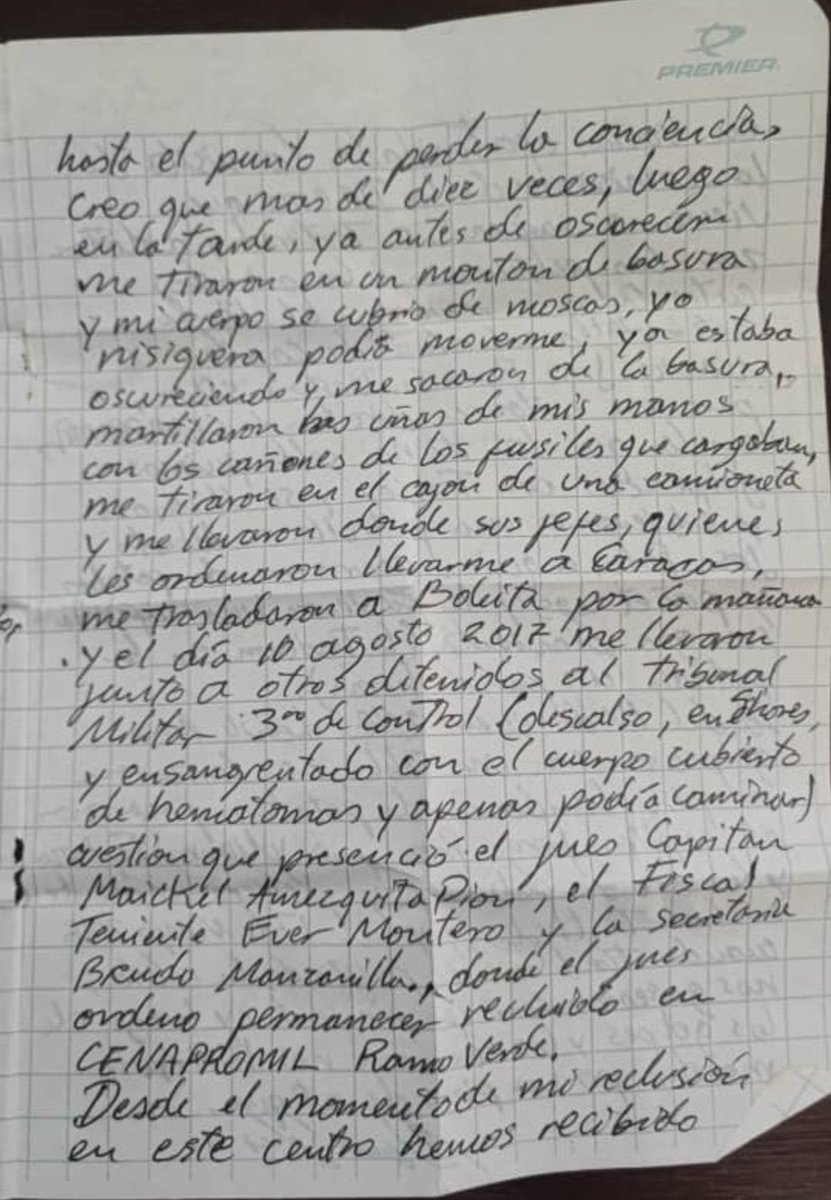 PREMIER.
hasta el punto de perder la conciencia,
creo que mas de diez veces, luego
en la tarde, ya antes de oscurecer
me tiraron en un monton de basura
y mi cuerpo se cubrio de moscas, yo
nisiquera podia moverme, ya estaba
oscureciendo y me sacaron de la basura,
martillaron las uñas de mis manos
con los cañones de los fusiles que cargaban,
me tiraron en el cajon de una camioneta
y me llevaron donde sus jefes, quienes
les ordenaron llevarme a Caracas,
me trasladaron a Boleita por la mañana
y el día 10 agosto 2017 me llevaron
junto a otros detenidos al tribunal
Militar 3ro de control (descalso, en Shores,
y ensangrentado con el cuerpo cubierto
de hematomas y apenas podía caminar)
cuestion que presenció el jues Capitan
Maickel Amezquita Pion, el Fiscal
Teniente Ever Montero y la secretaria
Manzanilla., donde el jues
ordeno permanecer recluido en
CENAPROMIL Ramo Verde.
Desde el momento de mi reclusión
en este centro hemos recibido